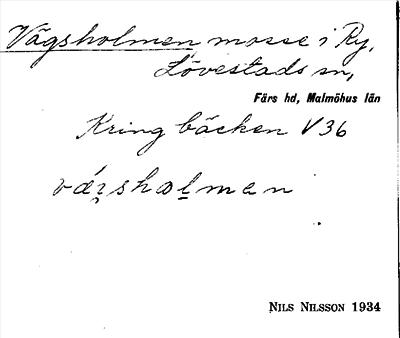 Vägsholmen mosse i Ry,
Lövestads sn,
Färs hd, Malmöhus län
Kring bäcken V36
NILS NILSSON 1934